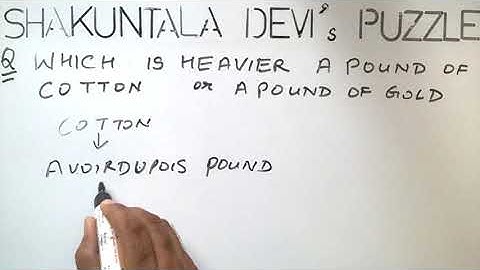 SHAKUNTALA DEVI's PUZZLE
Q WHICH IS HEAVIER A POUND OF
COTTON or A POUND OF GOLD
COTTON
↓
AVOIRDUPOIS POUND